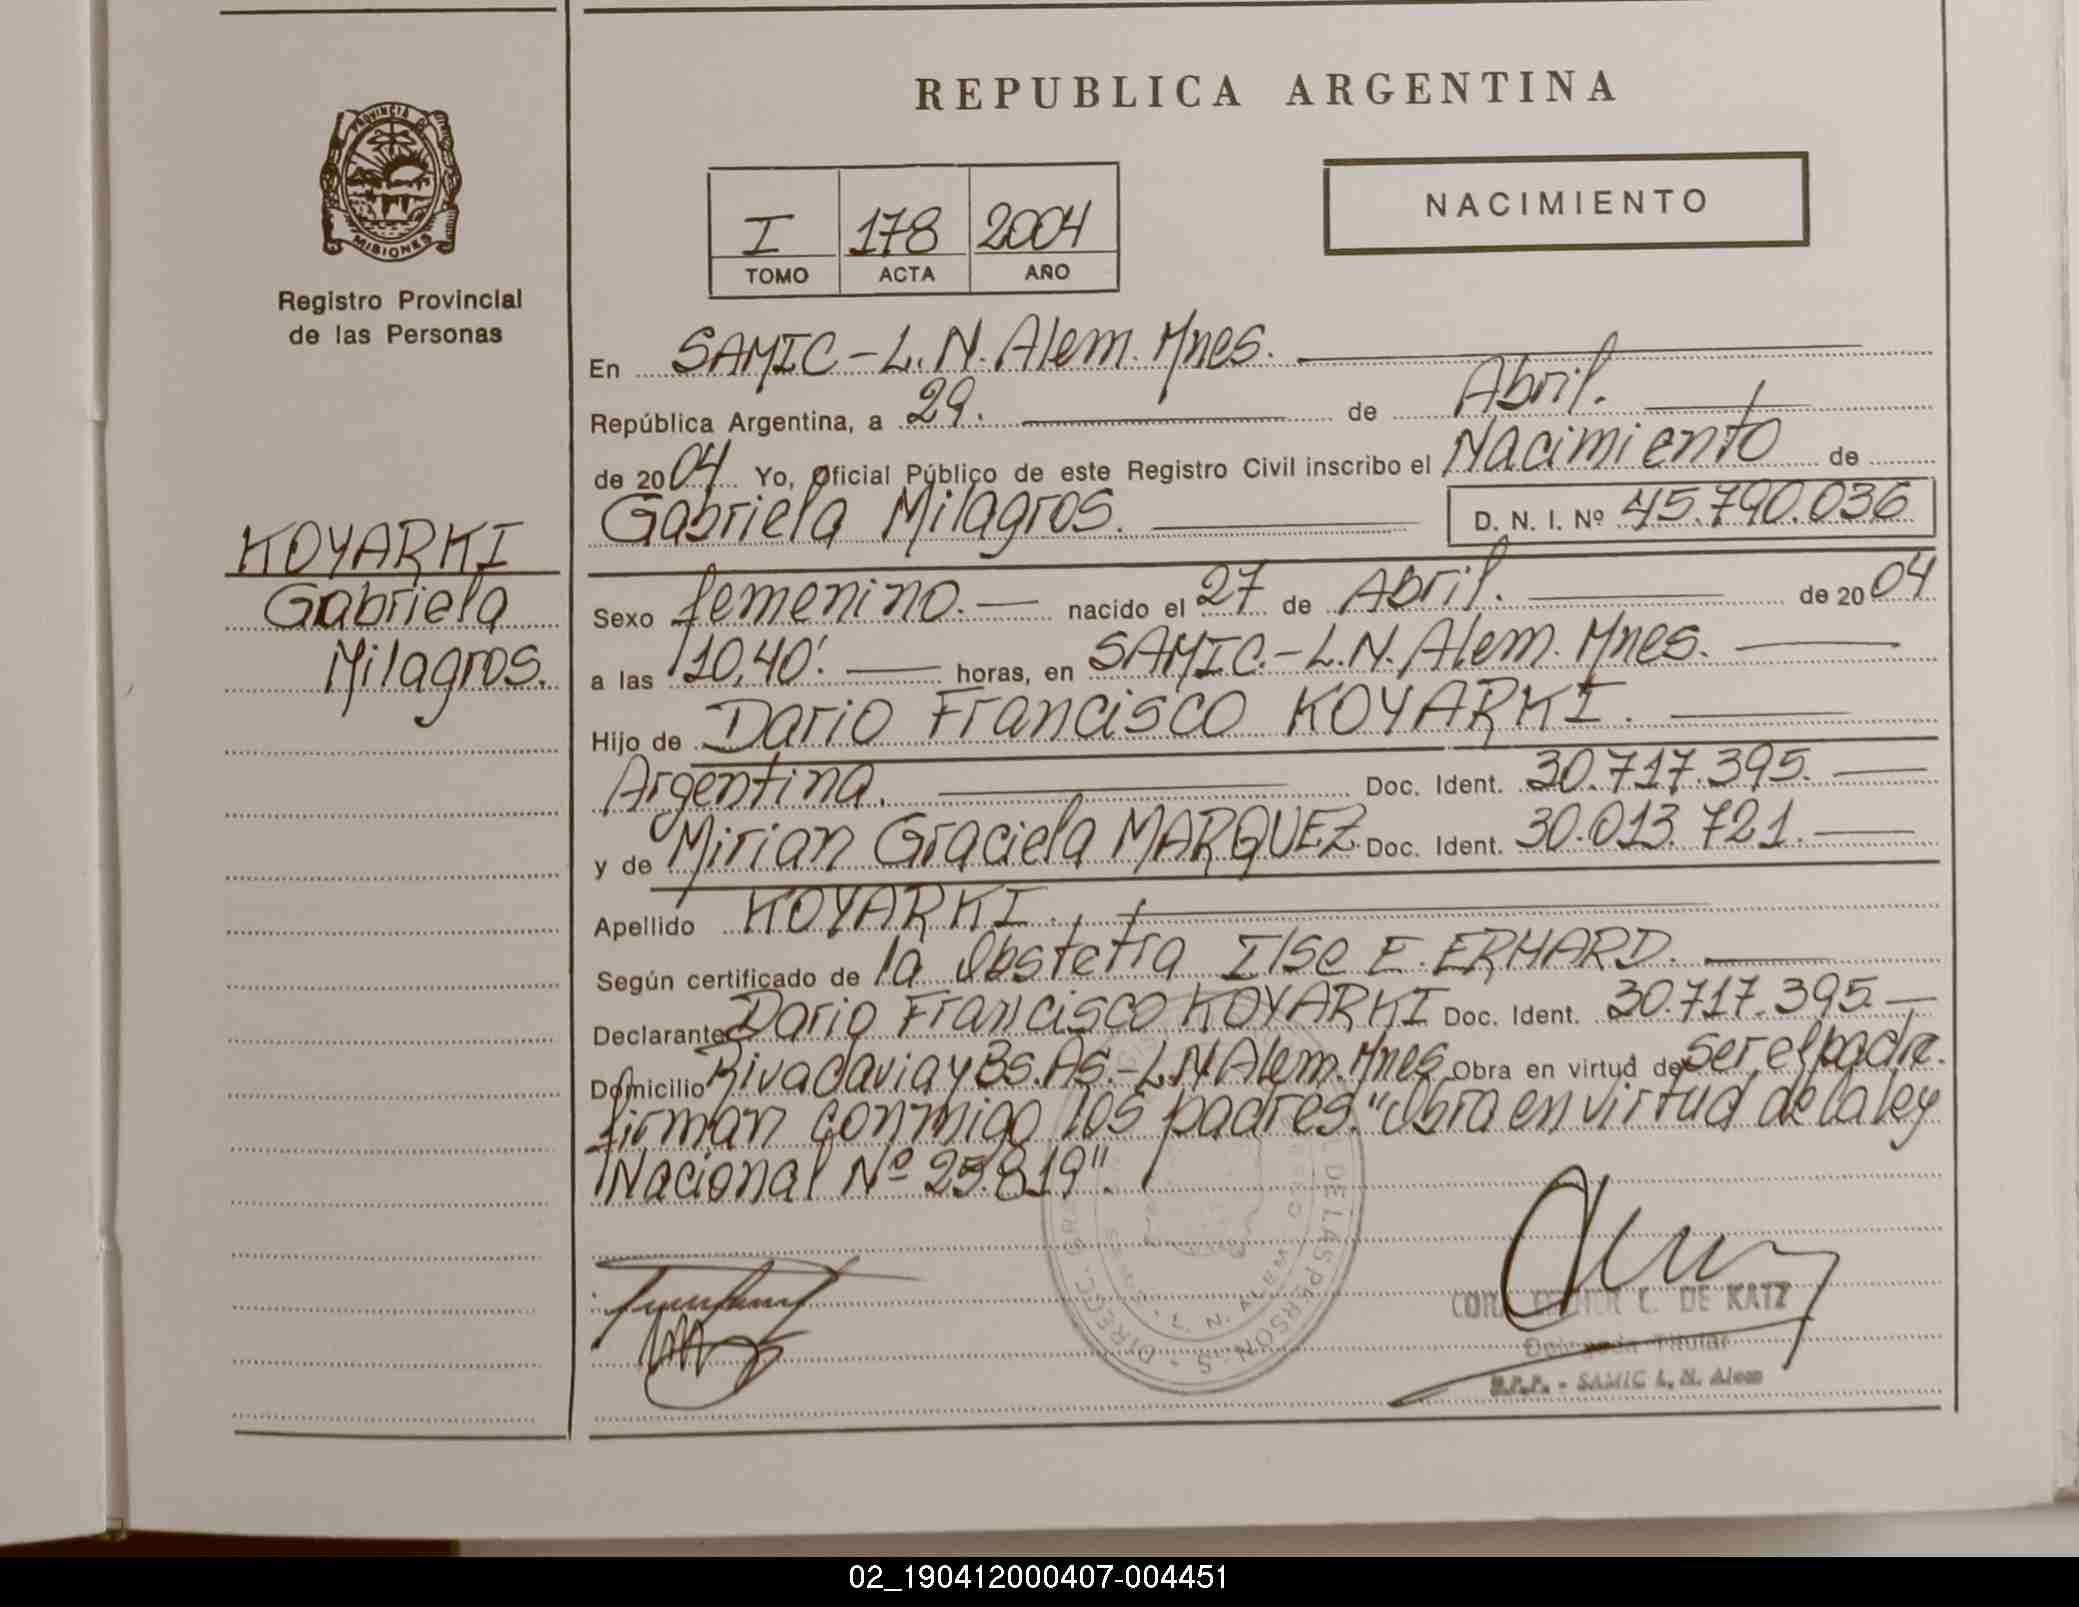 REPUBLICA ARGENTINA
PROVINCIA DE
MISIONES
Registro Provincial
de las Personas
I 178 2004
TOMO ACTA AÑO
NACIMIENTO
KOYARKI
Gabriela
Milagros.
En SAMIC-L.N.Alem.Mnes.
República Argentina, a 29. de Abril.
de 2004 Yo, Oficial Público de este Registro Civil inscribo el Nacimiento de
Gabriela Milagros. D. N. I. Nº 45.790.036
Sexo femenino. nacido el 27 de Abril. de 2004
a las 10,40'. horas, en SAMIC.-L.N.Alem.Mnes.
Hijo de Dario Francisco KOYARKI.
Argentina. Doc. Ident. 30.717.395.
y de Mirian Graciela MARQUEZ Doc. Ident. 30.013.721.
Apellido KOYARKI.
Según certificado de la Obstetra Ilse E. ERHARD.
Declarante Dario Francisco KOYARKI Doc. Ident. 30.717.395.
Domicilio Rivadavia y Bs.As.-L.N Alem.Mnes Obra en virtud de ser el padre.
firman conmigo los padres. "Obra en virtud de la ley
Nacional Nº 25.819".
L. DE KATZ
Titular
SAMIC L. N. Alem
DE LAS PERSONAS
02_190412000407-004451